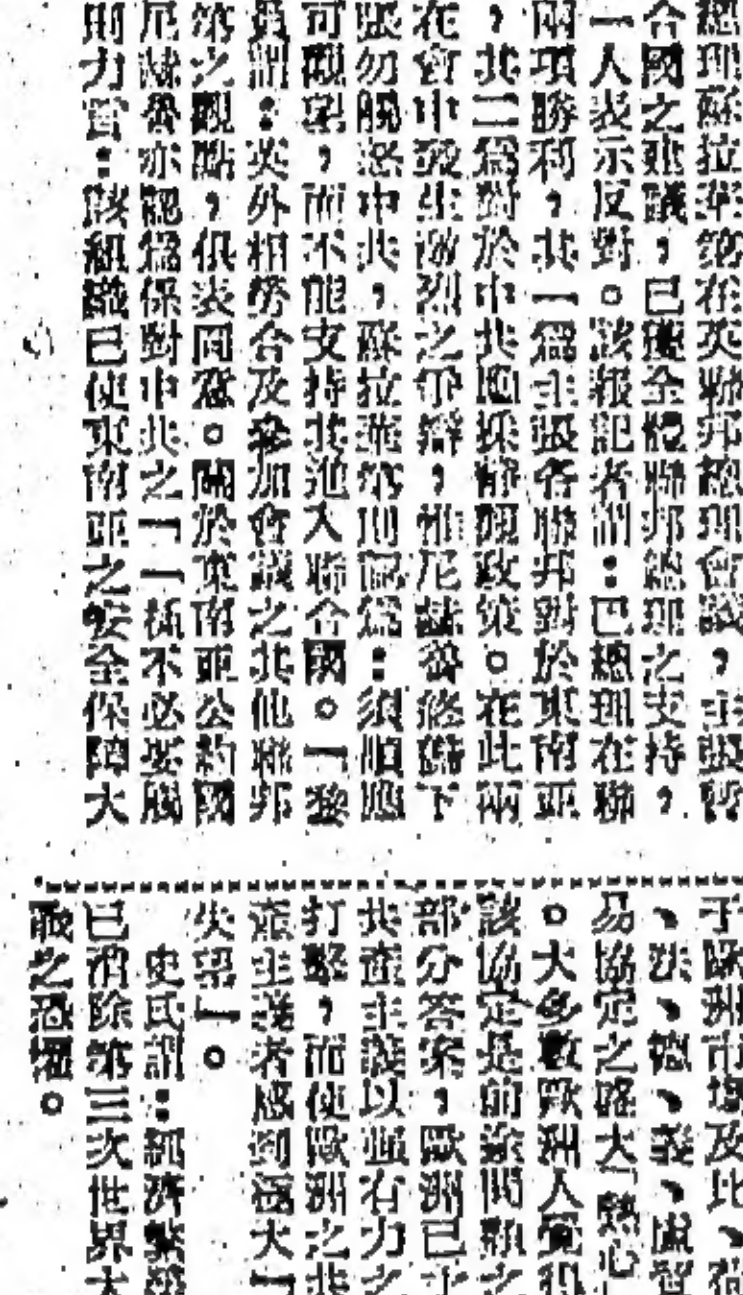 總理蘇拉華第在英聯邦總理會議，主張暫
合國之建議，已獲全體聯邦總理之支持，
一人表示反對。該報記者謂：巴總理在聯
兩項勝利，其一為主張各聯邦對於東南亞
，其二爲對於中共應採靜觀政策。在此兩
在會中發生激烈之爭辯，惟尼赫魯終歸下
張勿觸怒中共，蘇拉華第則認爲：須順應
可觀望，而不能支持其進入聯合國。一發
員謂：英外相勞合及參加會議之其他聯邦
第之觀點，俱表同意。關於東南亞公約國
尼赫魯亦認爲係對中共之「一極不必要觸
則力言：該組織已使東南亞之安全保障大
于歐洲市場及比、荷
、法、德、義、盧暫
易協定之擴大「熱心
。大多數歐洲人覺得
該協定是前途問題之
部分答案，歐洲已予
共產主義以強有力之
打擊，而使歐洲之共
產主義者感到極大「
失望」。
史氏謂：經濟繁榮
已消除第三次世界大
戰之恐懼。